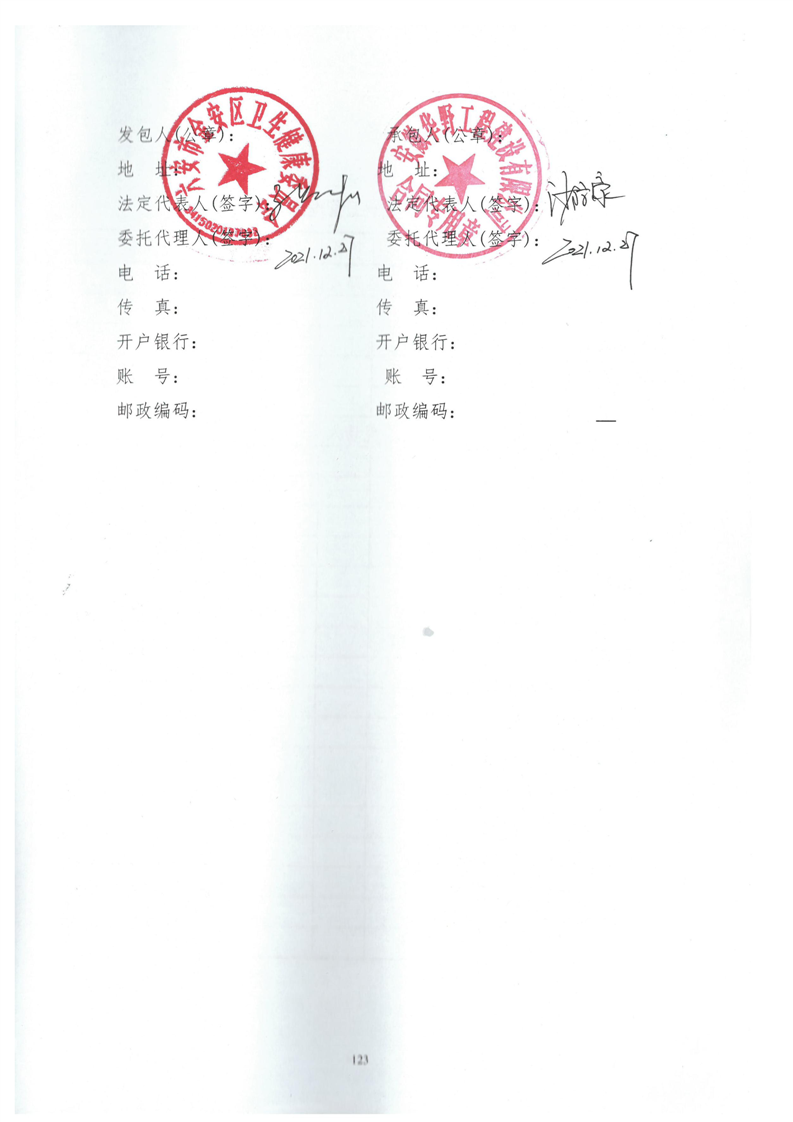 六安市金安区卫生健康委员会
安徽华野工程建设有限公司
合同专用章
发包人(公章): 承包人(公章):
地 址: 地 址:
法定代表人(签字): 法定代表人(签字):
委托代理人(签字): 委托代理人(签字):
2021.12.27 2021.12.27
电 话: 电 话:
传 真: 传 真:
开户银行: 开户银行:
账 号: 账 号:
邮政编码: 邮政编码:
123